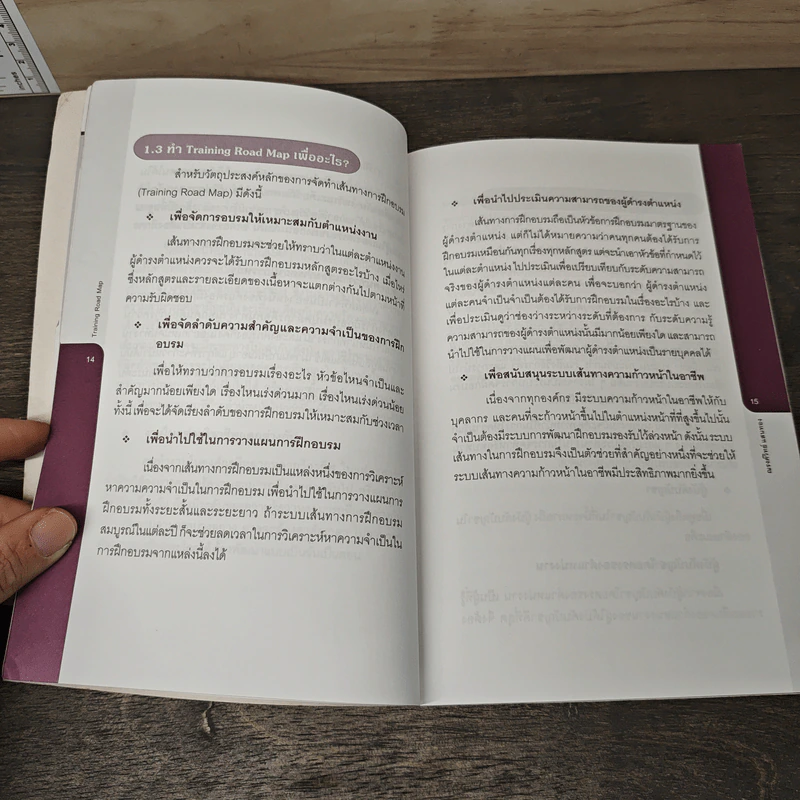 1.3 ทำ Training Road Map เพื่ออะไร?
สำหรับวัตถุประสงค์หลักของการจัดทำเส้นทางการฝึกอบรม
(Training Road Map) มีดังนี้
❖ เพื่อจัดการอบรมให้เหมาะสมกับตำแหน่งงาน
เส้นทางการฝึกอบรมจะช่วยให้ทราบว่าในแต่ละตำแหน่งงาน
ผู้ดำรงตำแหน่งควรจะได้รับการฝึกอบรมหลักสูตรอะไรบ้าง เมื่อไหร่
ซึ่งหลักสูตรและรายละเอียดของเนื้อหาจะแตกต่างกันไปตามหน้าที่
ความรับผิดชอบ
❖ เพื่อจัดลำดับความสำคัญและความจำเป็นของการฝึก
อบรม
เพื่อให้ทราบว่าการอบรมเรื่องอะไร หัวข้อไหนจำเป็นและ
สำคัญมากน้อยเพียงใด เรื่องไหนเร่งด่วนมาก เรื่องไหนเร่งด่วนน้อย
ทั้งนี้ เพื่อจะได้จัดเรียงลำดับของการฝึกอบรมให้เหมาะสมกับช่วงเวลา
❖ เพื่อนำไปใช้ในการวางแผนการฝึกอบรม
เนื่องจากเส้นทางการฝึกอบรมเป็นแหล่งหนึ่งของการวิเคราะห์
หาความความจำเป็นในการฝึกอบรม เพื่อนำไปใช้ในการวางแผนการ
ฝึกอบรมทั้งระยะสั้นและระยะยาว ถ้าระบบเส้นทางการฝึกอบรม
สมบูรณ์ในแต่ละปี ก็จะช่วยลดเวลาในการวิเคราะห์หาความจำเป็นใน
การฝึกอบรมจากแหล่งนี้ลงได้
Training Road Map
14
❖ เพื่อนำไปประเมินความสามารถของผู้ดำรงตำแหน่ง
เส้นทางการฝึกอบรมถือเป็นหัวข้อการฝึกอบรมมาตรฐานของ
ผู้ดำรงตำแหน่ง แต่ก็ไม่ได้หมายความว่าคนทุกคนต้องได้รับการ
ฝึกอบรมเหมือนกันทุกเรื่องทุกหลักสูตร แต่จะนำเอาหัวข้อที่กำหนดไว้
ในแต่ละตำแหน่ง ไปประเมินเพื่อเปรียบเทียบกับระดับความสามารถ
จริงของผู้ดำรงตำแหน่งแต่ละคน เพื่อจะบอกว่า ผู้ดำรงตำแหน่ง
แต่ละคนจำเป็นจำเป็นต้องได้รับการฝึกอบรมในเรื่องอะไรบ้าง และ
เพื่อประเมินดูว่าช่องว่างระหว่างระดับที่ต้องการ กับระดับความรู้
ความสามารถของผู้ดำรงตำแหน่งนั้นมีมากน้อยเพียงใด และสามารถ
นำไปใช้ในการวางแผนเพื่อพัฒนาผู้ดำรงตำแหน่งเป็นรายบุคคลได้
❖ เพื่อสนับสนุนระบบเส้นทางความก้าวหน้าในอาชีพ
เนื่องจากทุกองค์กร มีระบบความก้าวหน้าในอาชีพให้กับ
บุคลากร และคนที่จะก้าวขึ้นไปในตำแหน่งหน้าที่ที่สูงขึ้นไปนั้น
จำเป็นต้องมีระบบการพัฒนาฝึกอบรมรองรับไว้ล่วงหน้า ดังนั้น ระบบ
เส้นทางในการฝึกอบรมจึงเป็นตัวช่วยที่สำคัญอย่างหนึ่งที่จะช่วยให้
ระบบเส้นทางความก้าวหน้าในอาชีพมีประสิทธิภาพมากยิ่งขึ้น
15
ณรงค์วิทย์ แสนทอง
inches